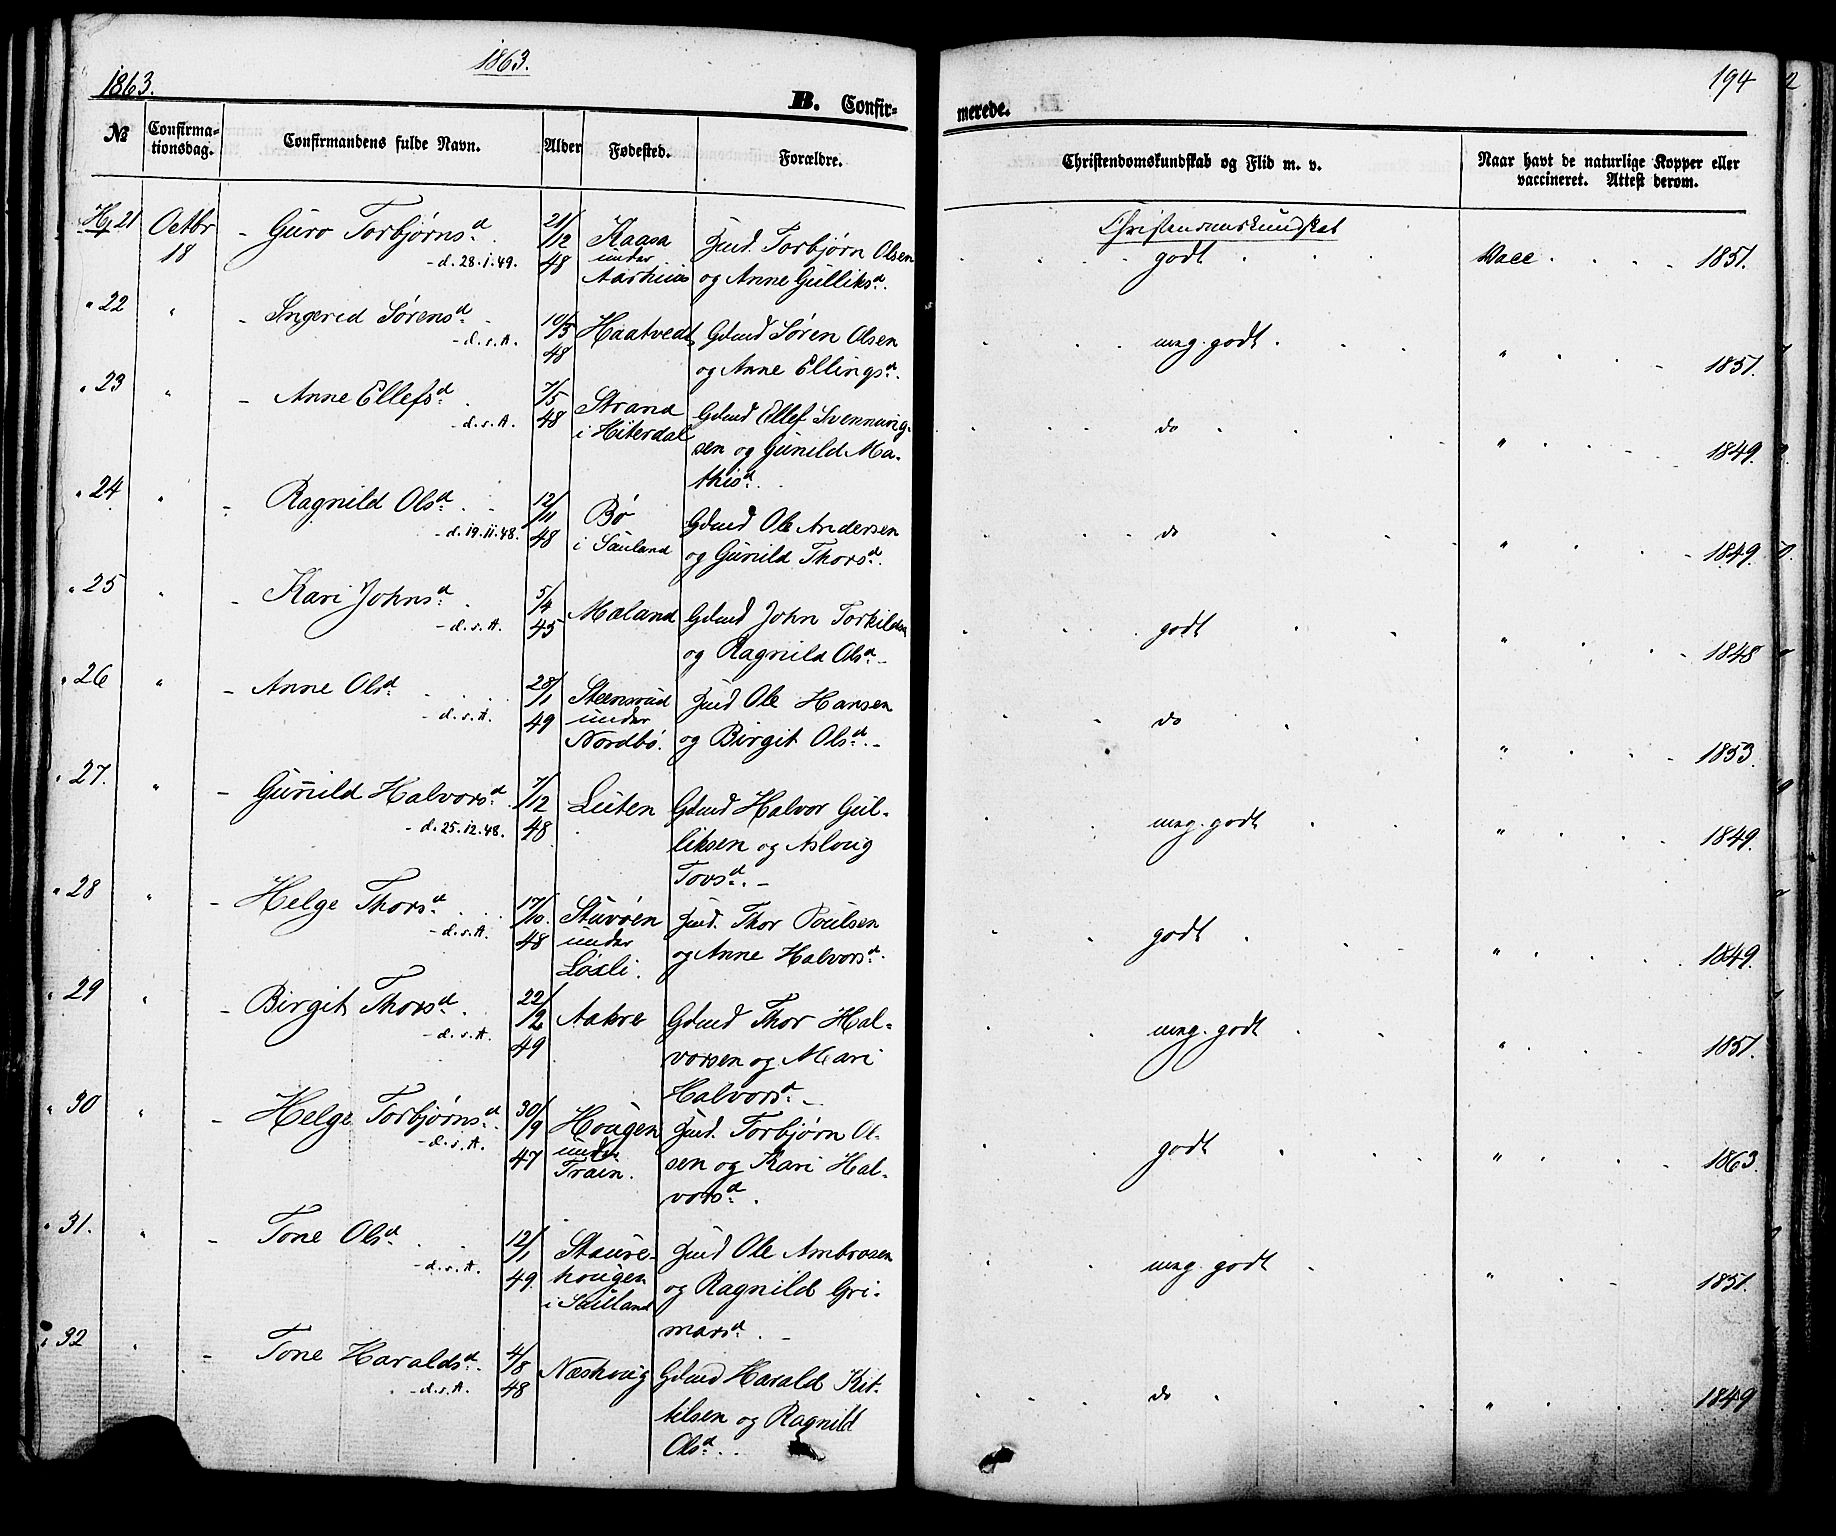 1863.
1863.
194
B. Confir-
merede.
№
Confirma-
tionsdag.
Confirmandens fulde Navn.
Alder
Fødested.
Forældre.
Christendomskundskab og Flid m. v.
Naar havt de naturlige Kopper eller
vaccineret. Attest derom.
21 Octbr 18 - Guro Torbjørnsd. - d. 28.1.49.
21/12 48
Kaasa
under
Aarhuus
Torbjørn Olsen
og Anne Gulliksd.
Christendomskundskab
godt
Vacc 1851.
" 22 " - Ingerid Sørensd. - d. s. A.
10/5 48
Haatvedt
Gdmd Søren Olsen
og Anne Ellingsd.
meg. godt " 1851.
" 23 " - Anne Ellefsd. - d. s. A.
7/5 48
Strand
i Hiterdal
Gdmd Ellef Svenning-
sen og Gunild Ma-
thisd.
do " 1849.
" 24. " - Ragnild Olsd. - d. 19.11.48.
12/11 48
Bø
i Sauland
Gdmd Ole Andersen
og Gunild Thorsd.
do " 1849.
" 25 " - Kari Johnsd. - d. s. A.
5/4 45
Mæland
Gdmd John Torkildsen
og Ragnild Olsd. -
godt " 1848
" 26 " - Anne Olsd. - d. s. A.
28/1 49
Steensrud
under
Nordbø.
Ole Hansen
og Birgit Olsd. -
do " 1853.
" 27. " - Gunild Halvorsd. - d. 25.12.48.
7/12 48
Luten
Gdmd Halvor Gul-
liksen og Asloug
Tovsd. -
meg. godt " 1849.
" 28 " - Helge Thorsd. - d. s. A.
17/10 48
Stuvøen
under
Løsli.
Thor Poulsen
og Anne Halvorsd.
godt " 1849.
" 29 " - Birgit Thorsd. - d. s. A.
22/2 49
Aakre
Gdmd Thor Hal-
vorsen og Mari
Halvorsd. -
meg. godt " 1851.
" 30 " - Helge Torbjørnsd. - d. s. A.
30/9 47
Hougen
under
Traen.
Torbjørn Ol-
sen og Kari Hal-
vorsd.
godt " 1863.
" 31. " - Tone Olsd. - d. s. A.
12/1 49.
Staure-
hougen
i Sauland
Ole Ambrosen
og Ragnild Gri-
marsd. -
meg. godt " 1851.
" 32 " - Tone Haraldsd. - d. s. A.
4/8 48
Næshoug
Gdmd Harald Kit-
tilsen og Ragnild
Olsd.
do " 1849